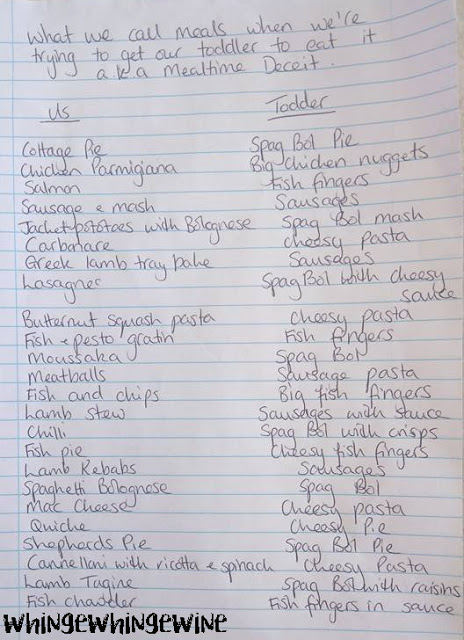 what we call meals when we're
trying to get our toddler to eat it
a.k.a Mealtime Deceit.
Us Todder
Cottage Pie Spag Bol Pie
Chicken Parmigiana Big chicken nuggets
Salmon Fish fingers
Sausage & mash Sausages
Jacket pototoes with Bolognese Spag Bol mash
Carbonare cheesy pasta
Greek lamb tray bake Sausages
Lasagnes Spag Bol with cheesy
sauce
Butternut squash pasta cheesy pasta
Fish & pesto gratin Fish fingers
Moussaka Spag Bol
Meatballs Sausage pasta
Fish and chips Big fish fingers
Lamb Stew Sausages with sauce
Chilli Spag Bol with crisps
Fish pie Cheesy fish fingers
Lamb Kebabs Sausages
Spaghetti Bolognese Spag Bol
Mac Cheese Cheesy pasta
Quiche Cheesy Pie
Shepherds Pie Spag Bol Pie
Cannelloni with ricotta & spinach Cheesy Pasta
Lamb Tagine Spag Bol with raisins
Fish chowder Fish fingers in sauce
WHINGEWHINGEWINE